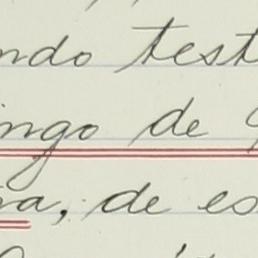 ndo test
ingo de
a, de es